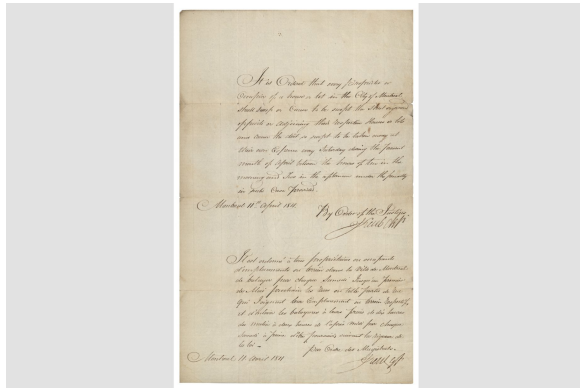 It is Ordered that every Proprietor or
Occupier of a house or lot in the City of Montreal
shall sweep or Cause to be swept the Street
opposite or adjoining their respective Houses or lots
and cause the dirt so swept to be taken away at
their own Expense every Saturday during the present
month of April between the hours of ten in the
morning and Two in the afternoon under the penalty
in such Case provided.
Montreal 11th April 1811.
By Order of the Justices
Il est ordonné à tous propriétaires ou occupants
d'emplacements ou terrain dans la ville de Montréal
de balayer pour chaque Semaine
de Mai prochain les rues ou telle partie de rue
qui Joignent leur Emplacement ou terrain respectif,
et d'enlever les balayures à leurs frais
du matin à deux heures de l'après midi pour chaque
suivant la rigueur de
la loi.
par Ordre des Magistrats
Montreal 11 avril 1811